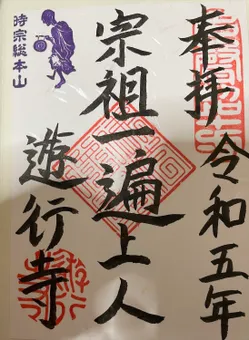 奉拝 令和五年
宗祖一遍上人
遊行寺
時宗総本山